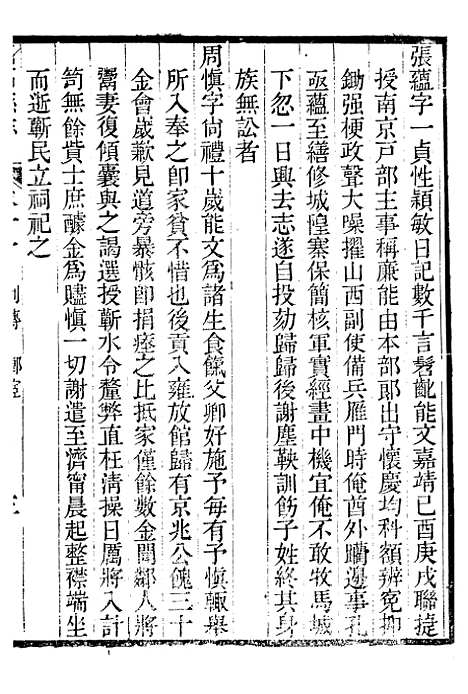 張蘊字一貞性穎敏日記數千言髫齔能文嘉靖己酉庚戌聯捷
授南京戸部主事稱廉能由本部郎出守懷慶均科額辨寃抑
鋤强梗政聲大噪擢山西副使備兵雁門時俺酋外躪邊事孔
亟蘊至繕修城隍寨保簡核軍實經畫中機宜俺不敢牧馬城
下忽一日興去志遂自投劾歸歸後謝塵鞅訓飭子姓終其身
族無訟者
周愼字尙禮十歲能文爲諸生食餼父卿好施予每有予愼輒舉
所入奉之卽家貧不惜也後貢入雍放館歸有京兆公餽三十
金會歲歉見道旁暴骸卽捐瘞之比抵家僅餘數金聞鄰人將
鬻妻復傾囊與之謁選授蘄水令釐弊直枉清操日厲將入計
笥無餘貲士庶醵金爲贐愼一切謝遣至濟甯晨起整襟端坐
而逝蘄民立祠祀之
列傳